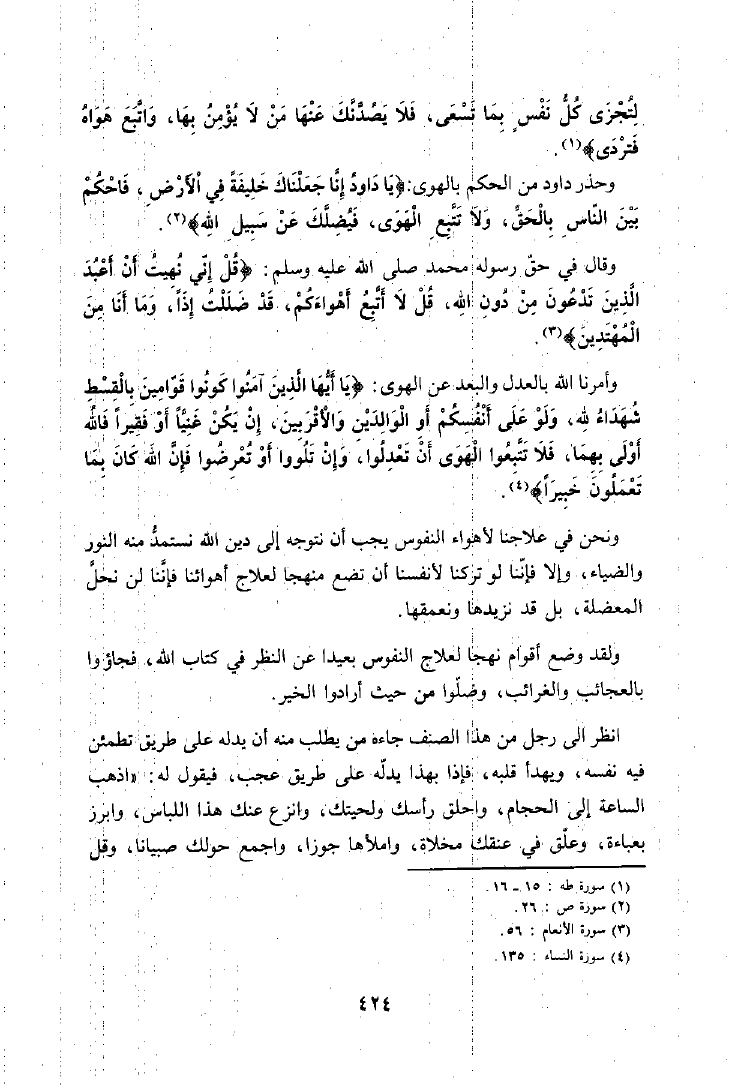 لِتُجْزَى كُلُّ نَفْسٍ بِمَا تَسْعَى، فَلَا يَصُدَّنَّكَ عَنْهَا مَنْ لَا يُؤْمِنُ بِهَا، وَاتَّبَعَ هَوَاهُ
فَتَرْدَى﴾(١).
وحذر داود من الحكم بالهوى: ﴿يَا دَاودُ إِنَّا جَعَلْنَاكَ خَلِيفَةً فِي الْأَرْضِ، فَاحْكُمْ
بَيْنَ النَّاسِ بِالْحَقِّ، وَلَا تَتَّبِعِ الْهَوَى، فَيُضِلَّكَ عَنْ سَبِيلِ اللهِ﴾(٢).
وقال في حقّ رسوله محمد صلى الله عليه وسلم: ﴿قُلْ إِنِّي نُهِيتُ أَنْ أَعْبُدَ
الَّذِينَ تَدْعُونَ مِنْ دُونِ اللهِ، قُلْ لَا أَتَّبِعُ أَهْوَاءَكُمْ، قَدْ ضَلَلْتُ إِذَاً، وَمَا أَنَا مِنَ
الْمُهْتَدِينَ﴾(٣).
وأمرنا الله بالعدل والبعد عن الهوى: ﴿يَا أَيُّهَا الَّذِينَ آمَنُوا كَونُوا قَوَّامِينَ بِالْقِسْطِ
شُهَدَاءُ لِلهِ، وَلَوْ عَلَى أَنْفُسِكُمْ أَوِ الْوَالِدَيْنِ وَالْأَقْرَبِينَ، إِنْ يَكُنْ غَنِيَّاً أَوْ فَقِيراً فَاللهُ
أَوْلَى بِهِمَا، فَلَا تَتَّبِعُوا الْهَوَى أَنْ تَعْدِلُوا، وَإِنْ تَلُووا أَوْ تُعْرِضُوا فَإِنَّ اللهَ كَانَ بِمَا
تَعْمَلُونَ خَبِيرَاً﴾(٤).
ونحن في علاجنا لأهواء النفوس يجب أن نتوجه إلى دين الله نستمدُّ منه النور
والضياء، وإلا فإنّنا لو تركنا لأنفسنا أن تضع منهجا لعلاج أهوائنا فإنَّنا لن نحلَّ
المعضلة، بل قد نزيدها ونعمقها.
ولقد وضع أقوام نهجا لعلاج النفوس بعيدا عن النظر في كتاب الله، فجاؤوا
بالعجائب والغرائب، وضلّوا من حيث أرادوا الخير.
انظر الى رجل من هذا الصنف جاءه من يطلب منه أن يدله على طريق تطمئن
فيه نفسه، ويهدأ قلبه، فإذا بهذا يدلّه على طريق عجب، فيقول له: «اذهب
الساعة إلى الحجام، واحلق رأسك ولحيتك، وانزع عنك هذا اللباس، وابرز
بعباءة، وعلّق في عنقك مخلاة، واملأها جوزا، واجمع حولك صبيانا، وقل
(١) سورة طه : ١٥ ـ ١٦.
(٢) سورة ص : ٢٦.
(٣) سورة الأنعام : ٥٦.
(٤) سورة النساء : ١٣٥.
٤٢٤